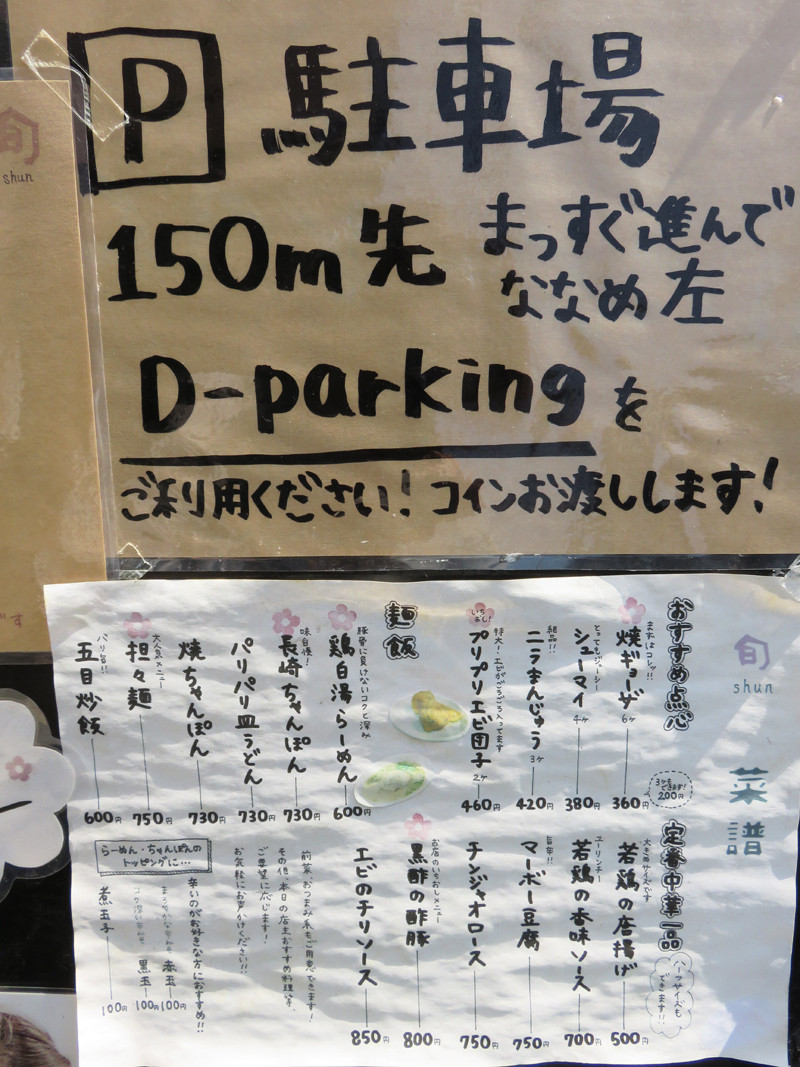 旬
shun
P 駐車場
150m先 まっすぐ進んで
ななめ左
D-parking を
ご利用ください! コインお渡しします!
旬
shun
菜譜
おすすめ点心
まずはコレッ!!
焼ギョーザ 6ヶ 360円
3ヶもできます! 200円
とってもジューシー
シューマイ 4ヶ 380円
絶品!!
ニラまんじゅう 3ヶ 420円
いちおし!
特大!エビがごろごろ入ってます
プリプリエビ団子 2ヶ 460円
麺飯
豚骨に負けないコクと深み
鶏白湯らーめん 600円
味自慢!
長崎ちゃんぽん 730円
パリパリ皿うどん 730円
焼ちゃんぽん 730円
大人気メニュー
担々麺 750円
パリ旨!!
五目炒飯 600円
定番中華一品
ハーフサイズもできます!!
大もぬサイズです
若鶏の唐揚げ 500円
ユーリンチー
若鶏の香味ソース 700円
旨辛!!
マーボー豆腐 750円
チンジャオロース 750円
当店のいちおしメニュー
黒酢の酢豚 800円
エビのチリソース 850円
前菜、おつまみ系もご用意できます!
その他、本日の店主おすすめ料理等、
ご要望に応じます!
お気軽にお声かけください!!
らーめん・ちゃんぽんの
トッピングに…
辛いのがお好きな方におすすめ!!
赤玉 100円
黒玉 100円
煮玉子 100円
です